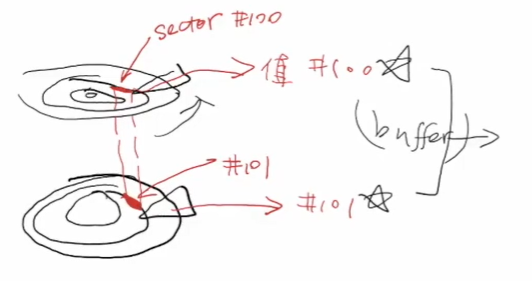 sector #100
值 #100
(buffer)
#101
#101